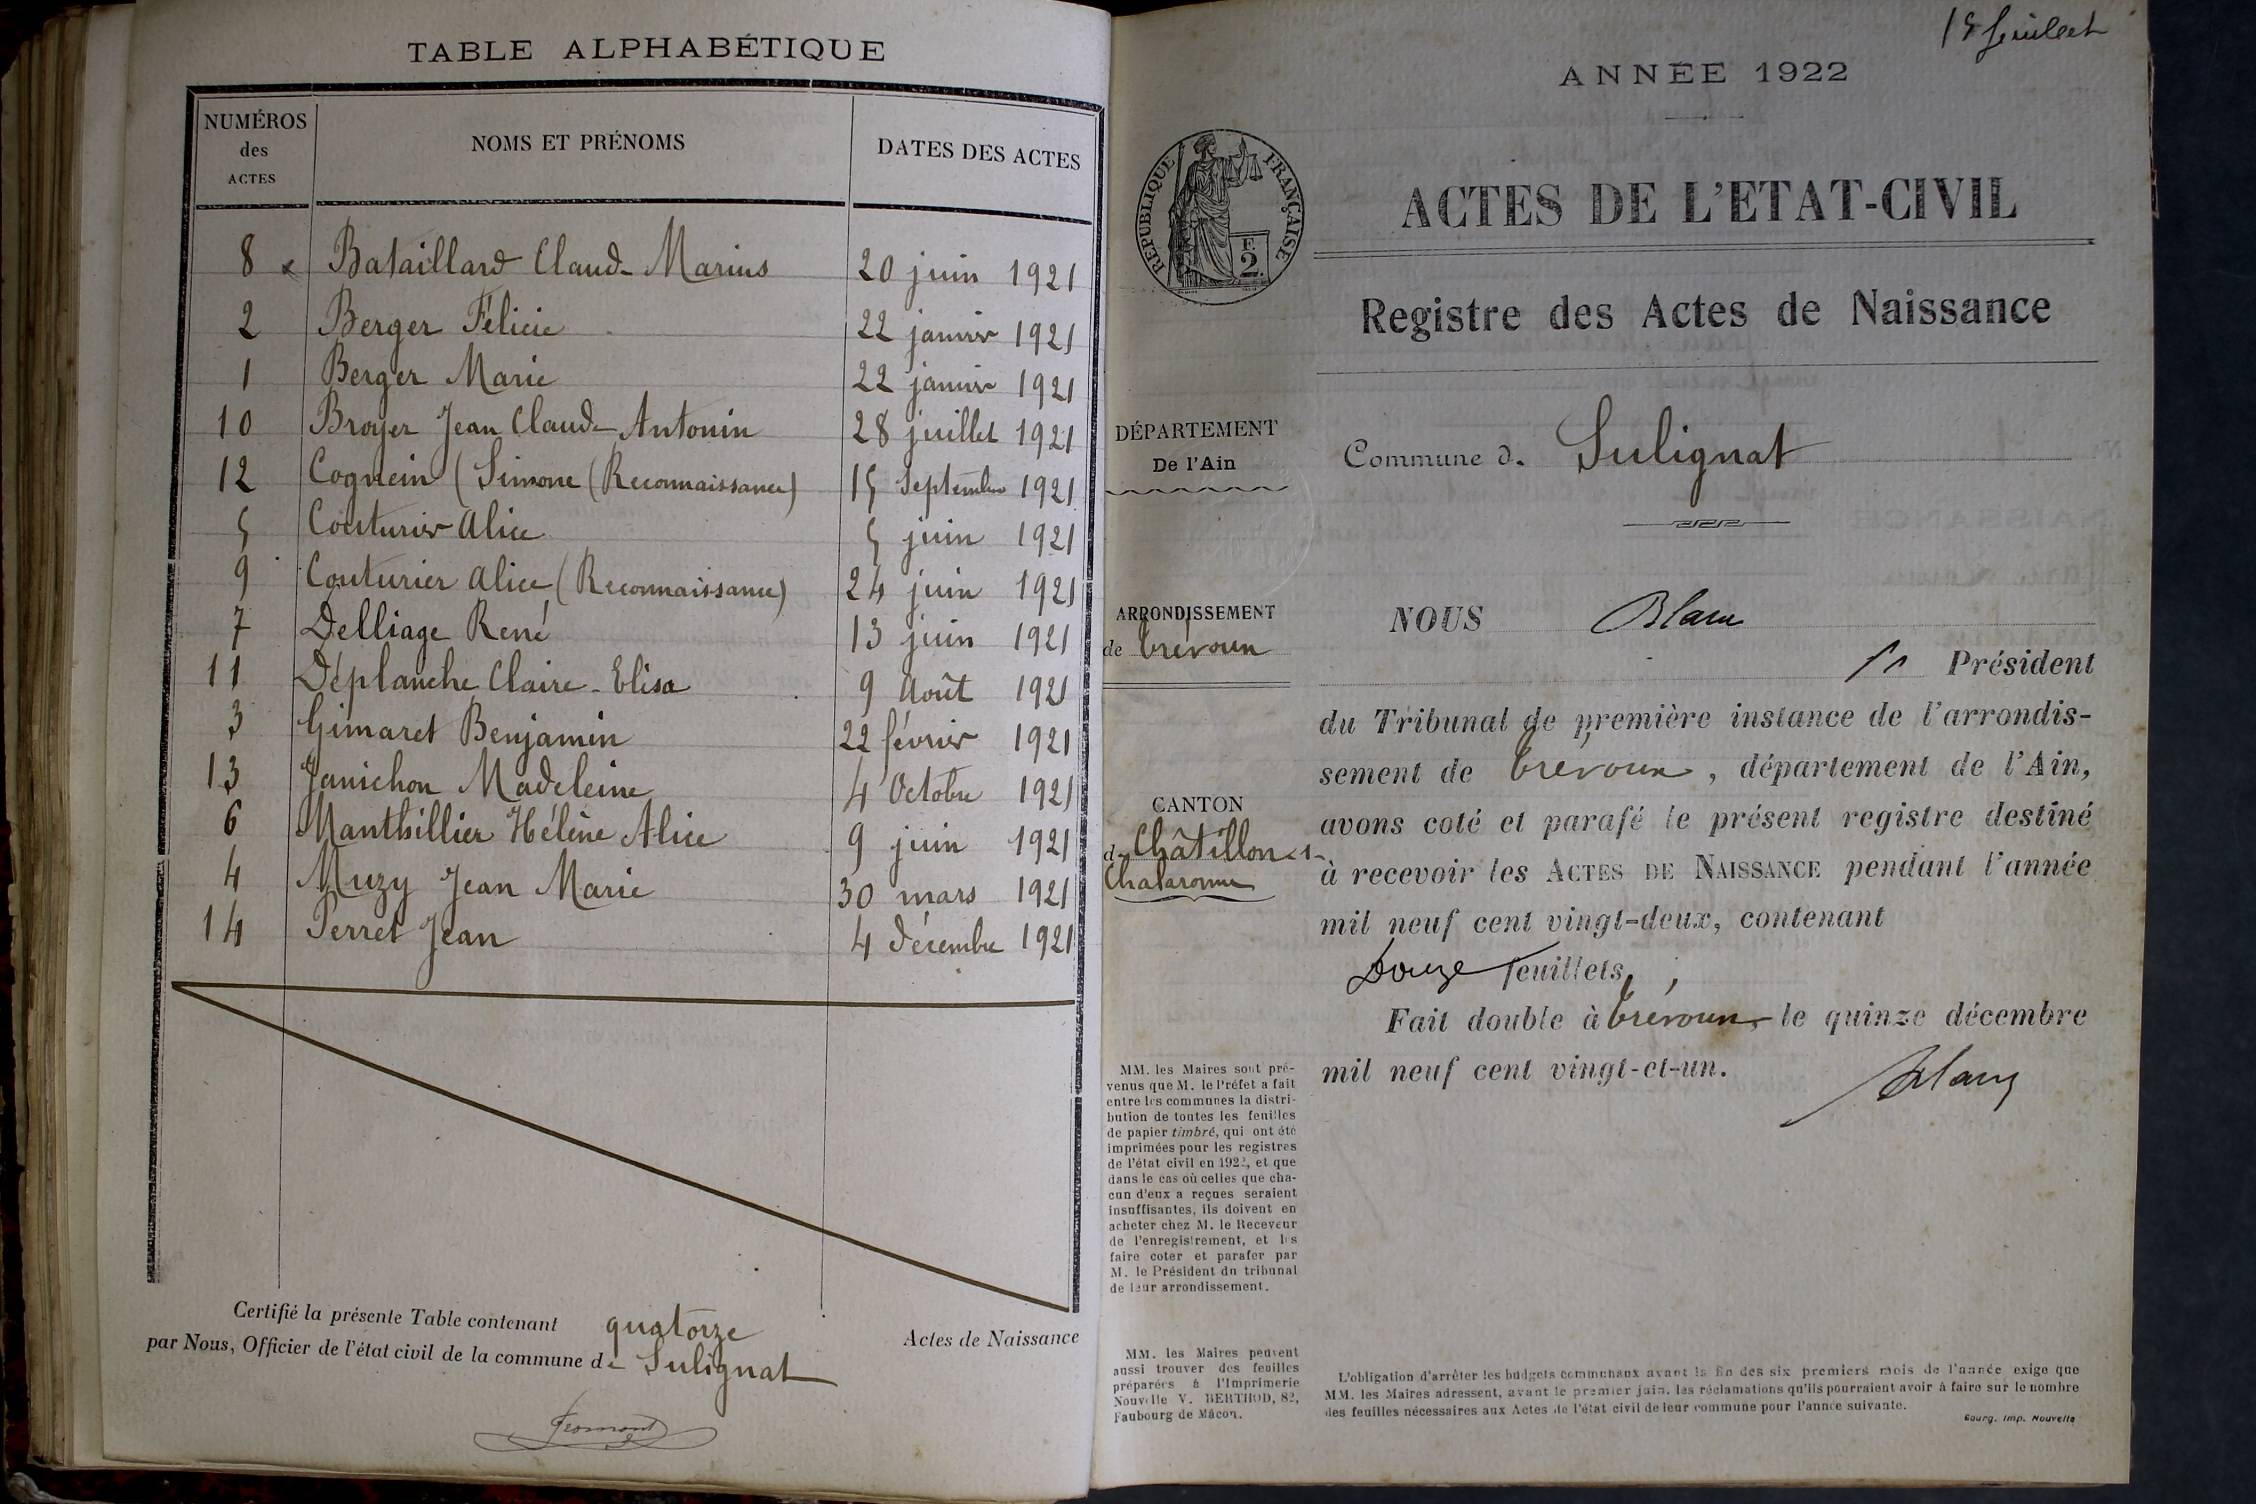 TABLE ALPHABÉTIQUE
NUMÉROS
des
ACTES
NOMS ET PRÉNOMS
DATES DES ACTES
8 x Bataillard Claude Marius 20 juin 1921
2 Berger Félicie 22 janvier 1921
1 Berger Marie 22 janvier 1921
10 Broyer Jean Claude Antonin 28 juillet 1921
12 Cognein (Simone (Reconnaissance) 15 Septembre 1921
5 Couturier Alice 5 juin 1921
9 Couturier Alice (Reconnaissance) 24 juin 1921
7 Delliage René 13 juin 1921
11 Déplanche Claire-Elisa 9 Août 1921
3 Gimaret Benjamin 22 février 1921
13 Janichon Madeleine 4 Octobre 1921
6 Manthillier Hélène Alice 9 juin 1921
4 Muzy Jean Marie 30 mars 1921
14 Perret Jean 4 décembre 1921
Certifié la présente Table contenant quatorze Actes de Naissance
par Nous, Officier de l'état civil de la commune de Sulignat
Fromont
ANNÉE 1922
RÉPUBLIQUE FRANÇAISE
F.
2.
ACTES DE L'ETAT-CIVIL
Registre des Actes de Naissance
DÉPARTEMENT
De l'Ain
ARRONDISSEMENT
de Trévoux
CANTON
de Châtillon s/
Chalaronne
MM. les Maires sont pré-
venus que M. le Préfet a fait
entre les communes la distri-
bution de toutes les feuilles
de papier timbré, qui ont été
imprimées pour les registres
de l'état civil en 1922, et que
dans le cas où celles que cha-
cun d'eux a reçues seraient
insuffisantes, ils doivent en
acheter chez M. le Receveur
de l'enregistrement, et les
faire coter et parafer par
M. le Président du tribunal
de leur arrondissement.
MM. les Maires peuvent
aussi trouver des feuilles
préparées à l'Imprimerie
Nouvelle V. BERTHOD, 82,
Faubourg de Mâcon.
Commune de Sulignat
NOUS Blanc
Président
du Tribunal de première instance de l'arrondis-
sement de Trévoux, département de l'Ain,
avons coté et parafé le présent registre destiné
à recevoir les ACTES DE NAISSANCE pendant l'année
mil neuf cent vingt-deux, contenant
Douze feuillets,
Fait double à Trévoux, le quinze décembre
mil neuf cent vingt-et-un.
Blanc
L'obligation d'arrêter les budgets communaux avant la fin des six premiers mois de l'année exige que
MM. les Maires adressent, avant le premier juin, les réclamations qu'ils pourraient avoir à faire sur le nombre
des feuilles nécessaires aux Actes de l'état civil de leur commune pour l'année suivante.
Bourg, Imp. Nouvelle